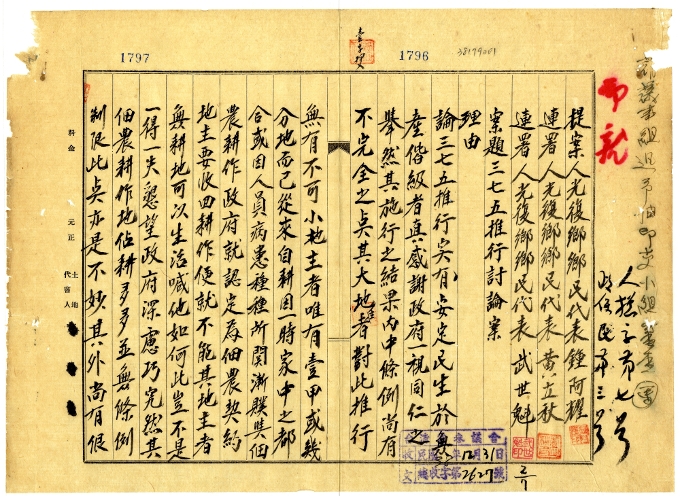 1797
1796
38179001
提案人光復鄉鄉民代表鍾阿耀
連署人光復鄉鄉民代表黃立秋
連署人光復鄉鄉民代表武世魁
案題三七五推行討論案
理由
論三七五推行実有安定民生於無
產偕級者真感謝政府一視同仁之
舉然其施行之結果内中條例尚有
不完全之点其大地主者對此推行
無有不可小地主者唯有壹甲或幾
分地而已從來自耕因一時家中之都
合或因人員病患種種所関漸贌與佃
農耕作政府就認定為佃農契約
地主要收回耕作便就不能其地主者
無耕地可以生活喊他如何此豈不是
一得一失懇望政府深慮巧完然其
佃農耕作地佔耕多多並無條例
制限此点亦是不妙其外尚有佷
料金
元正
土地
代書人
年12月31日
收字第2627號